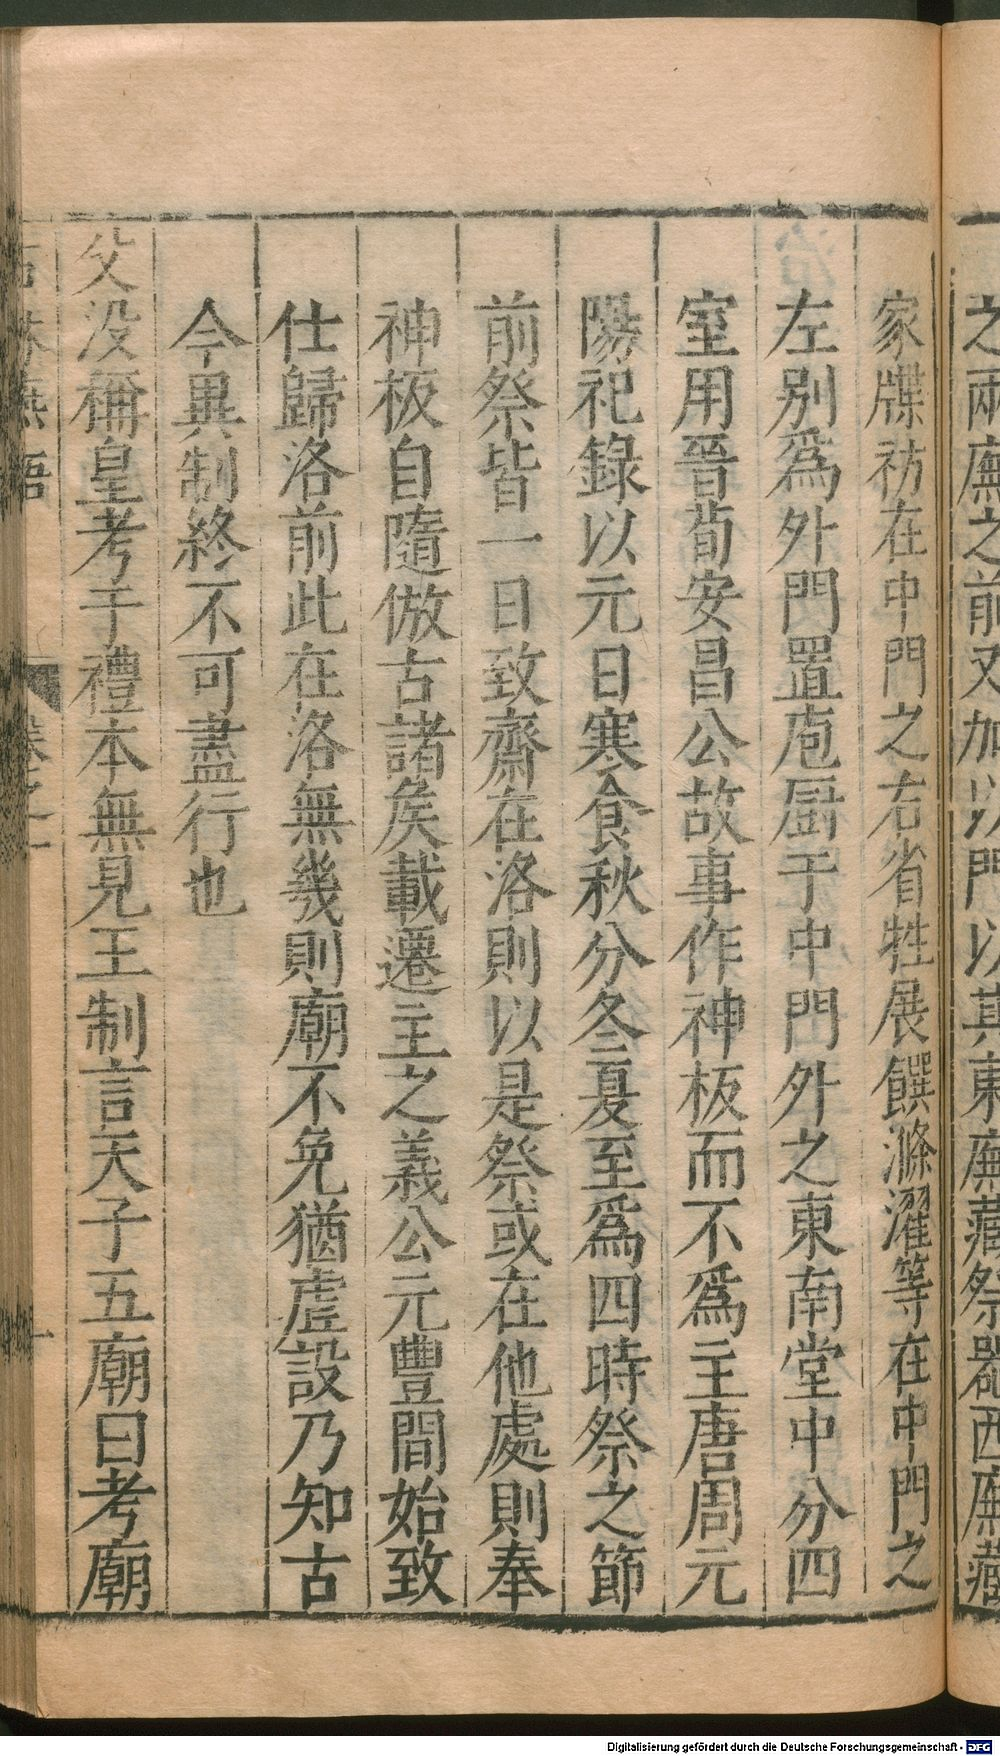 之兩廡之前又加以門以其東廡藏祭器西廡藏
家牒祊在中門之右省牲展饌滌濯等在中門之
左別爲外門置庖厨于中門外之東南堂中分四
室用晉荀安昌公故事作神板而不爲主唐周元
陽祀錄以元日寒食秋分冬夏至爲四時祭之節
前祭皆一日致齋在洛則以是祭或在他處則奉
神板自隨倣古諸矦載遷主之義公元豐間始致
仕歸洛前此在洛無幾則廟不免猶虛設乃知古
今異制終不可盡行也
父没稱皇考于禮本無見王制言天子五廟曰考廟
石林燕語
Digitalisierung gefördert durch die Deutsche Forschungsgemeinschaft - DFG